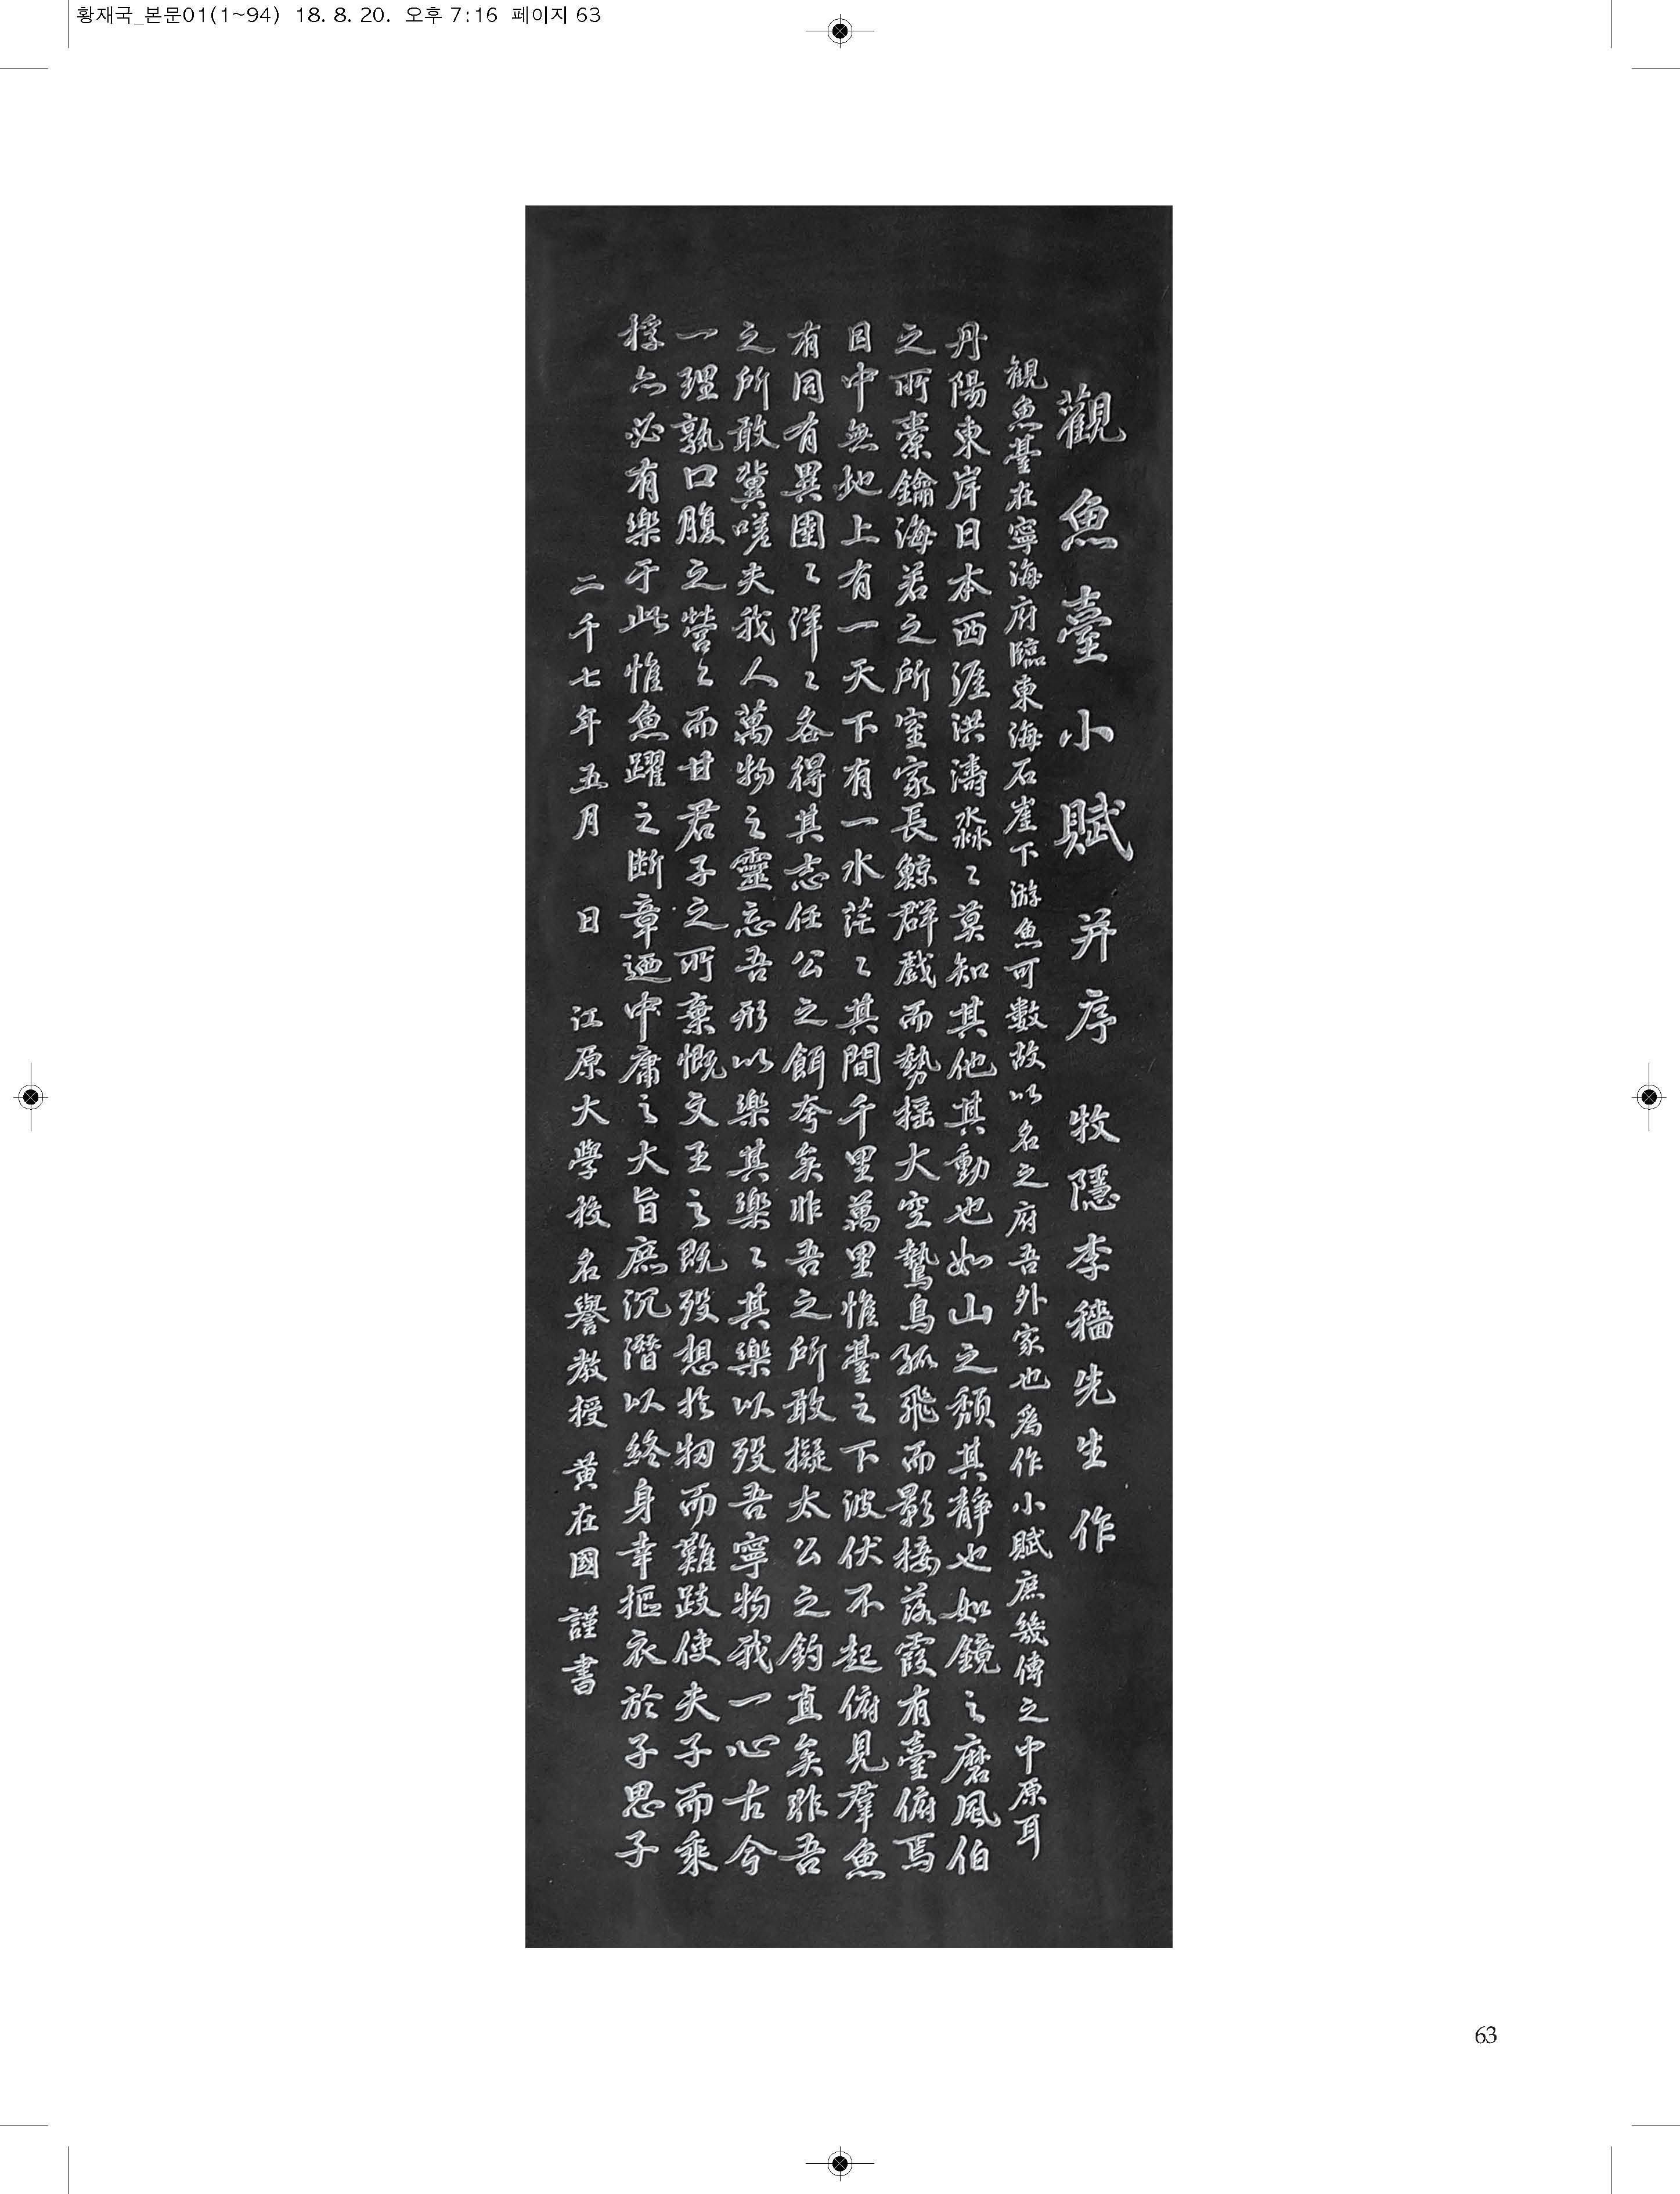 황재국_본문01(1~94) 18. 8. 20. 오후 7:16 페이지 63
觀魚臺小賦并序 牧隱李穡先生作
觀魚臺在寧海府臨東海石崖下游魚可數故以名之府吾外家也爲作小賦庶幾傳之中原耳
丹陽東岸日本西涯洪濤淼〻莫知其他其動也如山之頹其靜也如鏡之磨風伯
之所橐鑰海若之所室家長鯨群戲而勢搖大空鷙鳥孤飛而影接落霞有臺俯焉
目中無地上有一天下有一水茫〻其間千里萬里惟臺之下波伏不起俯見羣魚
有同有異圉〻洋〻各得其志任公之餌夸矣非吾之所敢擬太公之釣直矣非吾
之所敢冀嗟夫我人萬物之靈忘吾形以樂其樂〻其樂以歿吾寧物我一心古今
一理孰口腹之營〻而甘君子之所棄慨文王之旣歿想於牣而難跂使夫子而乘
桴亦必有樂于此惟魚躍之斷章迺中庸之大旨庶沉潛以終身幸摳衣於子思子
二千七年五月 日 江原大學校名譽敎授 黃在國 謹書
63